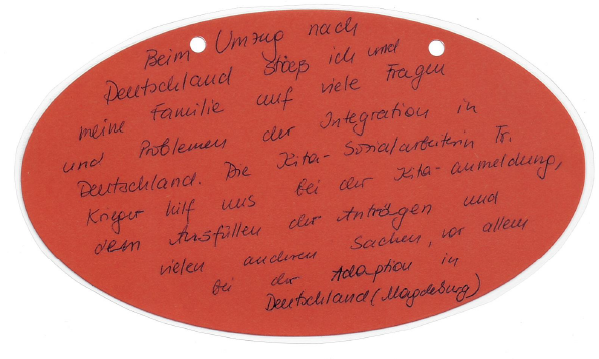 Beim Umzug nach
Deutschland stoß ich und
meine Familie auf viele Fragen
und Problemen der Integration in
Deutschland. Die Kita-Sozialarbeiterin Fr.
Krieger hilf uns bei der Kita-anmeldung,
dem Ausfüllen der Anträgen und
vielen anderen Sachen, vor allem
bei der Adaption in
Deutschland (Magdeburg)